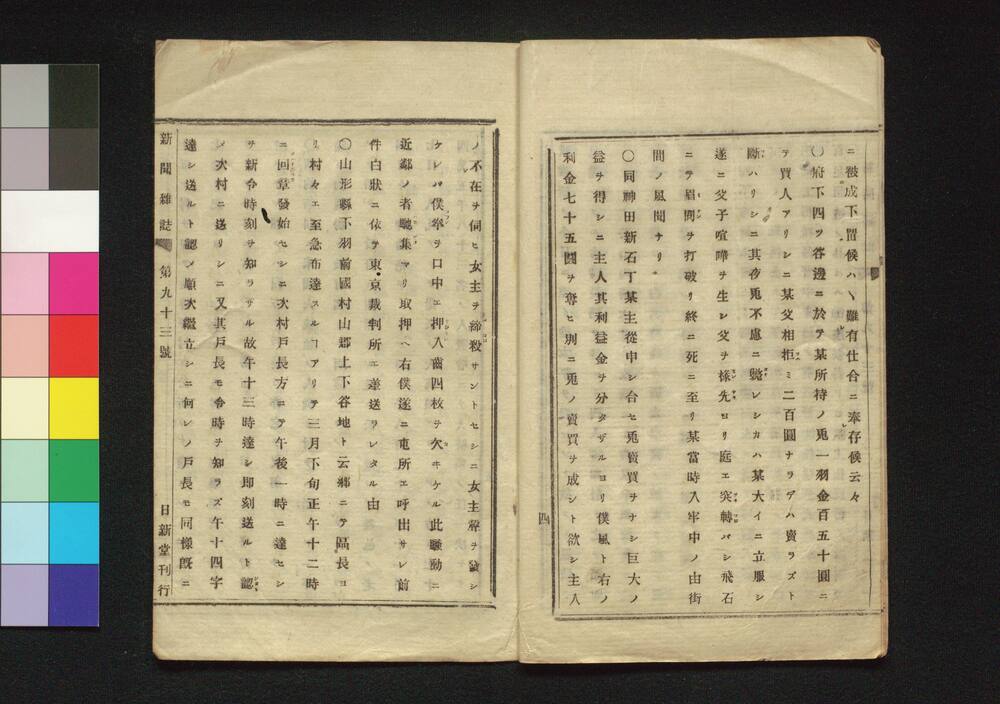 ニ被成下置候ハヽ難有仕合ニ奉存候云々
〇府下四ツ谷邊ニ於テ某所持ノ兎一羽金百五十圓ニ
テ買人アリシニ某父相拒ミ二百圓ナラデハ賣ラズト
斷ハリシニ其夜兎不慮ニ斃レシカハ某大イニ立服シ
遂ニ父子喧嘩ヲ生シ父ヲ椽先ヨリ庭エ突轉バシ飛石
ニテ眉間ヲ打破リ終ニ死ニ至リ某當時入牢中ノ由街
間ノ風聞ナリ
〇同神田新石丁某主從申シ合セ兎賣買ヲナシ巨大ノ
益ヲ得シニ主人其利益金ヲ分タザルヨリ僕風ト右ノ
利金七十五圓ヲ奪ヒ別ニ兎ノ賣買ヲ成シト欲シ主人
四
ノ不在ヲ伺ヒ女主ヲ締殺サントセシニ女主聲ヲ發シ
ケレバ僕拳ヲ口中エ押入齒四枚ヲ欠キケル此騷動ニ
近鄰ノ者馳集マリ取押ヘ右僕遂ニ屯所エ呼出サレ前
件白狀ニ依テ東京裁判所エ差送ラレタル由
〇山形縣下羽前國村山郡上下谷地ト云鄕ニテ區長ヨ
リ村々エ至急布達スルヿアリテ三月下旬正午十二時
ニ回章發始セシニ次村戸長方ニテ午後一時ニ達セシ
ヲ新令時刻ヲ知ラザル故午十三時達シ即刻送ルト認
メ次村ニ送リシニ又其戸長モ令時ヲ知ラズ午十四字
達シ送ルト認メ順次繼立シニ何レノ戸長モ同樣旣ニ
新聞雜誌 第九十三號 日新堂刊行